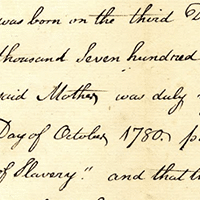 was born on the third D
thousand Seven hundred
said Mother was duly
Day of October 1780. p
of Slavery." and that t